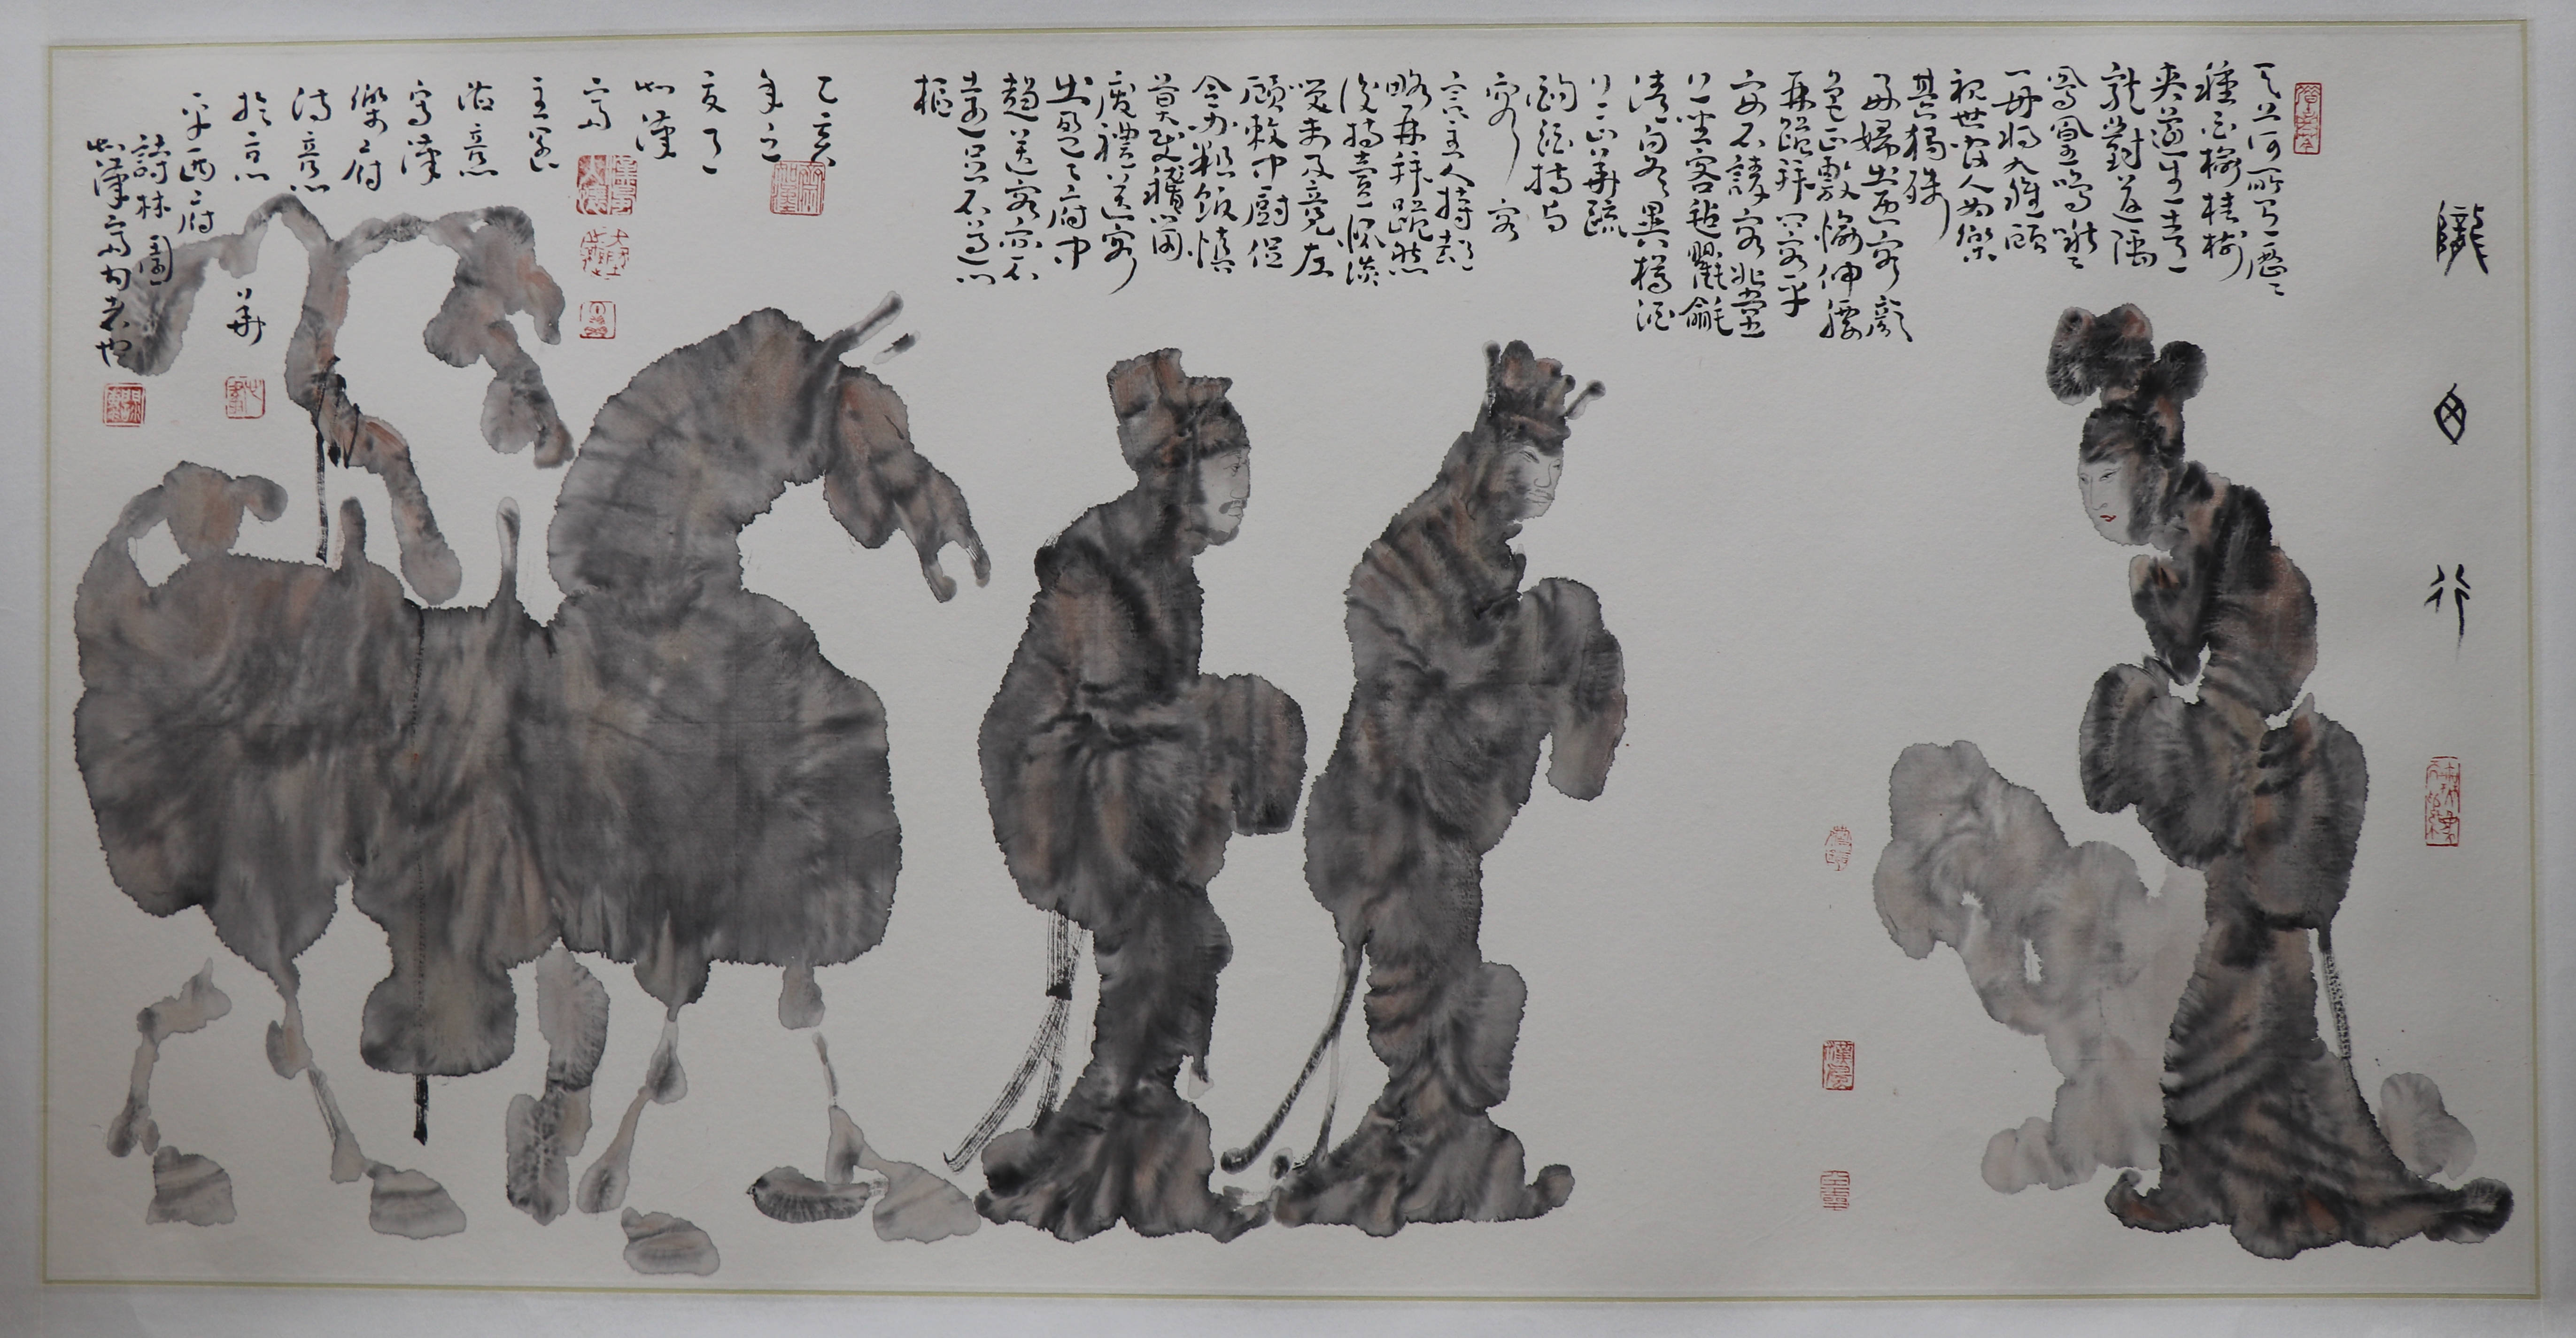 隴西行
天上何所有歷々
種白榆桂樹
夾道生青
龍對道隅
鳳凰鳴啾々
一母将九雛顧
視世間人為樂
甚獨殊
好婦出迎客顏
色正敷愉伸腰
再跪拜問客平
安不請客北堂
上坐客氈氍毹
清白各異樽酒
上正華疏
酌酒持与
客客
言主人持卻
略再拜跪然
後持壹杯談
笑未及竟左
顧敕中廚促
令办粗飯慎
莫使稽留
廢禮送客
出盈々府中
趨送客亦不
遠足不過門
樞
乙亥
年之
夏了
如漢
寫
寫漢
樂府
詩意
於京華
平西府
詩林園